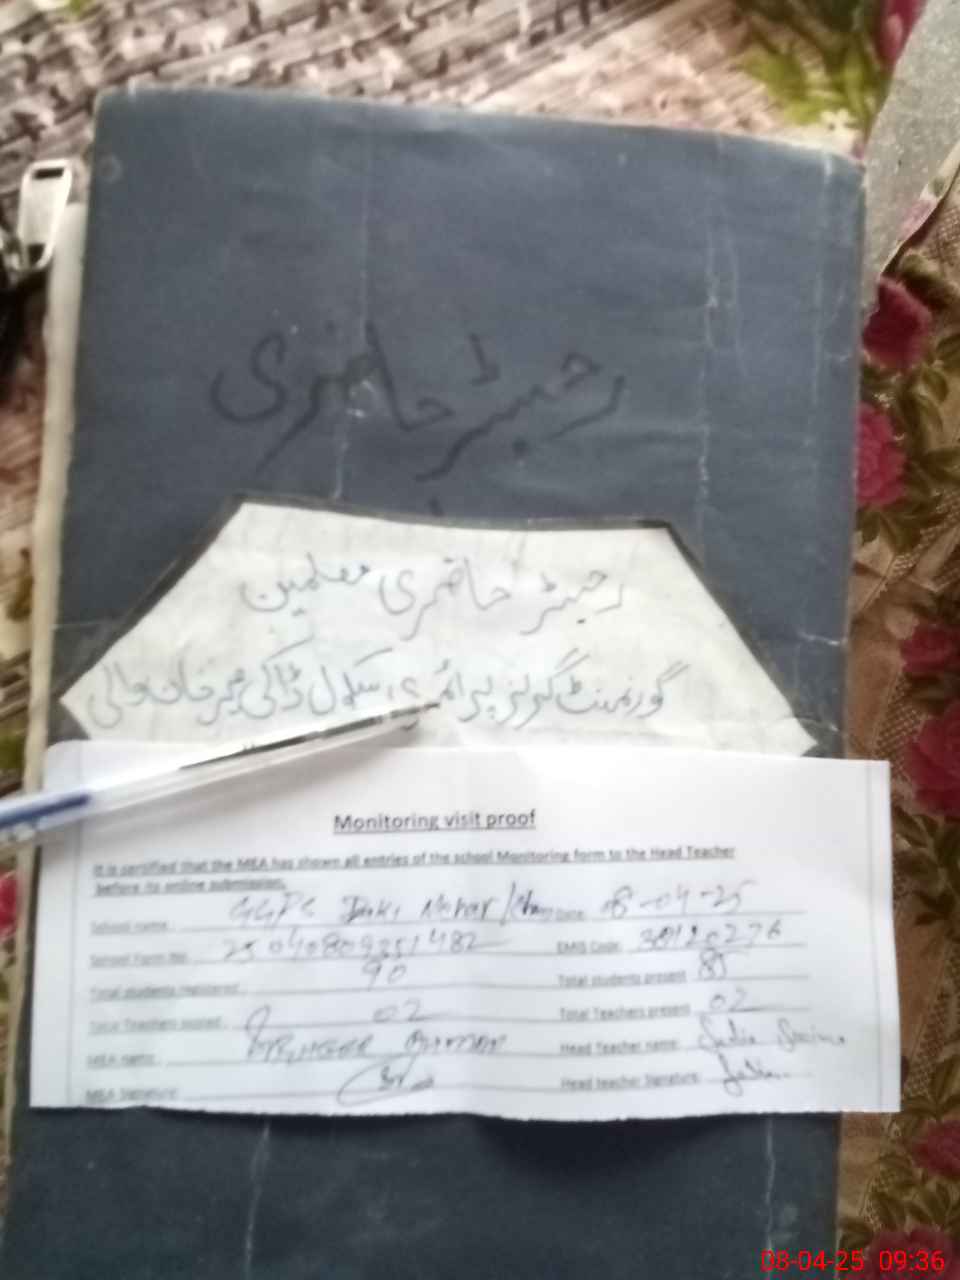 رجسٹر حاضری
رجسٹر حاضری معلمین
گورنمنٹ گرلز پرائمری سکول ڈاکی
Monitoring visit proof
It is certified that the MEA has shown all entries of the school Monitoring form to the Head Teacher
before its online submission.
School name: GGPS Daki Date: 08-04-25
School Form No: EMIS Code: 38120276
Total students registered: 90 Total students present: 85
Total Teachers posted: 02 Total Teachers present: 02
MEA name: Head Teacher name: Sadia
MEA Signature: Head teacher Signature:
08-04-25 09:36